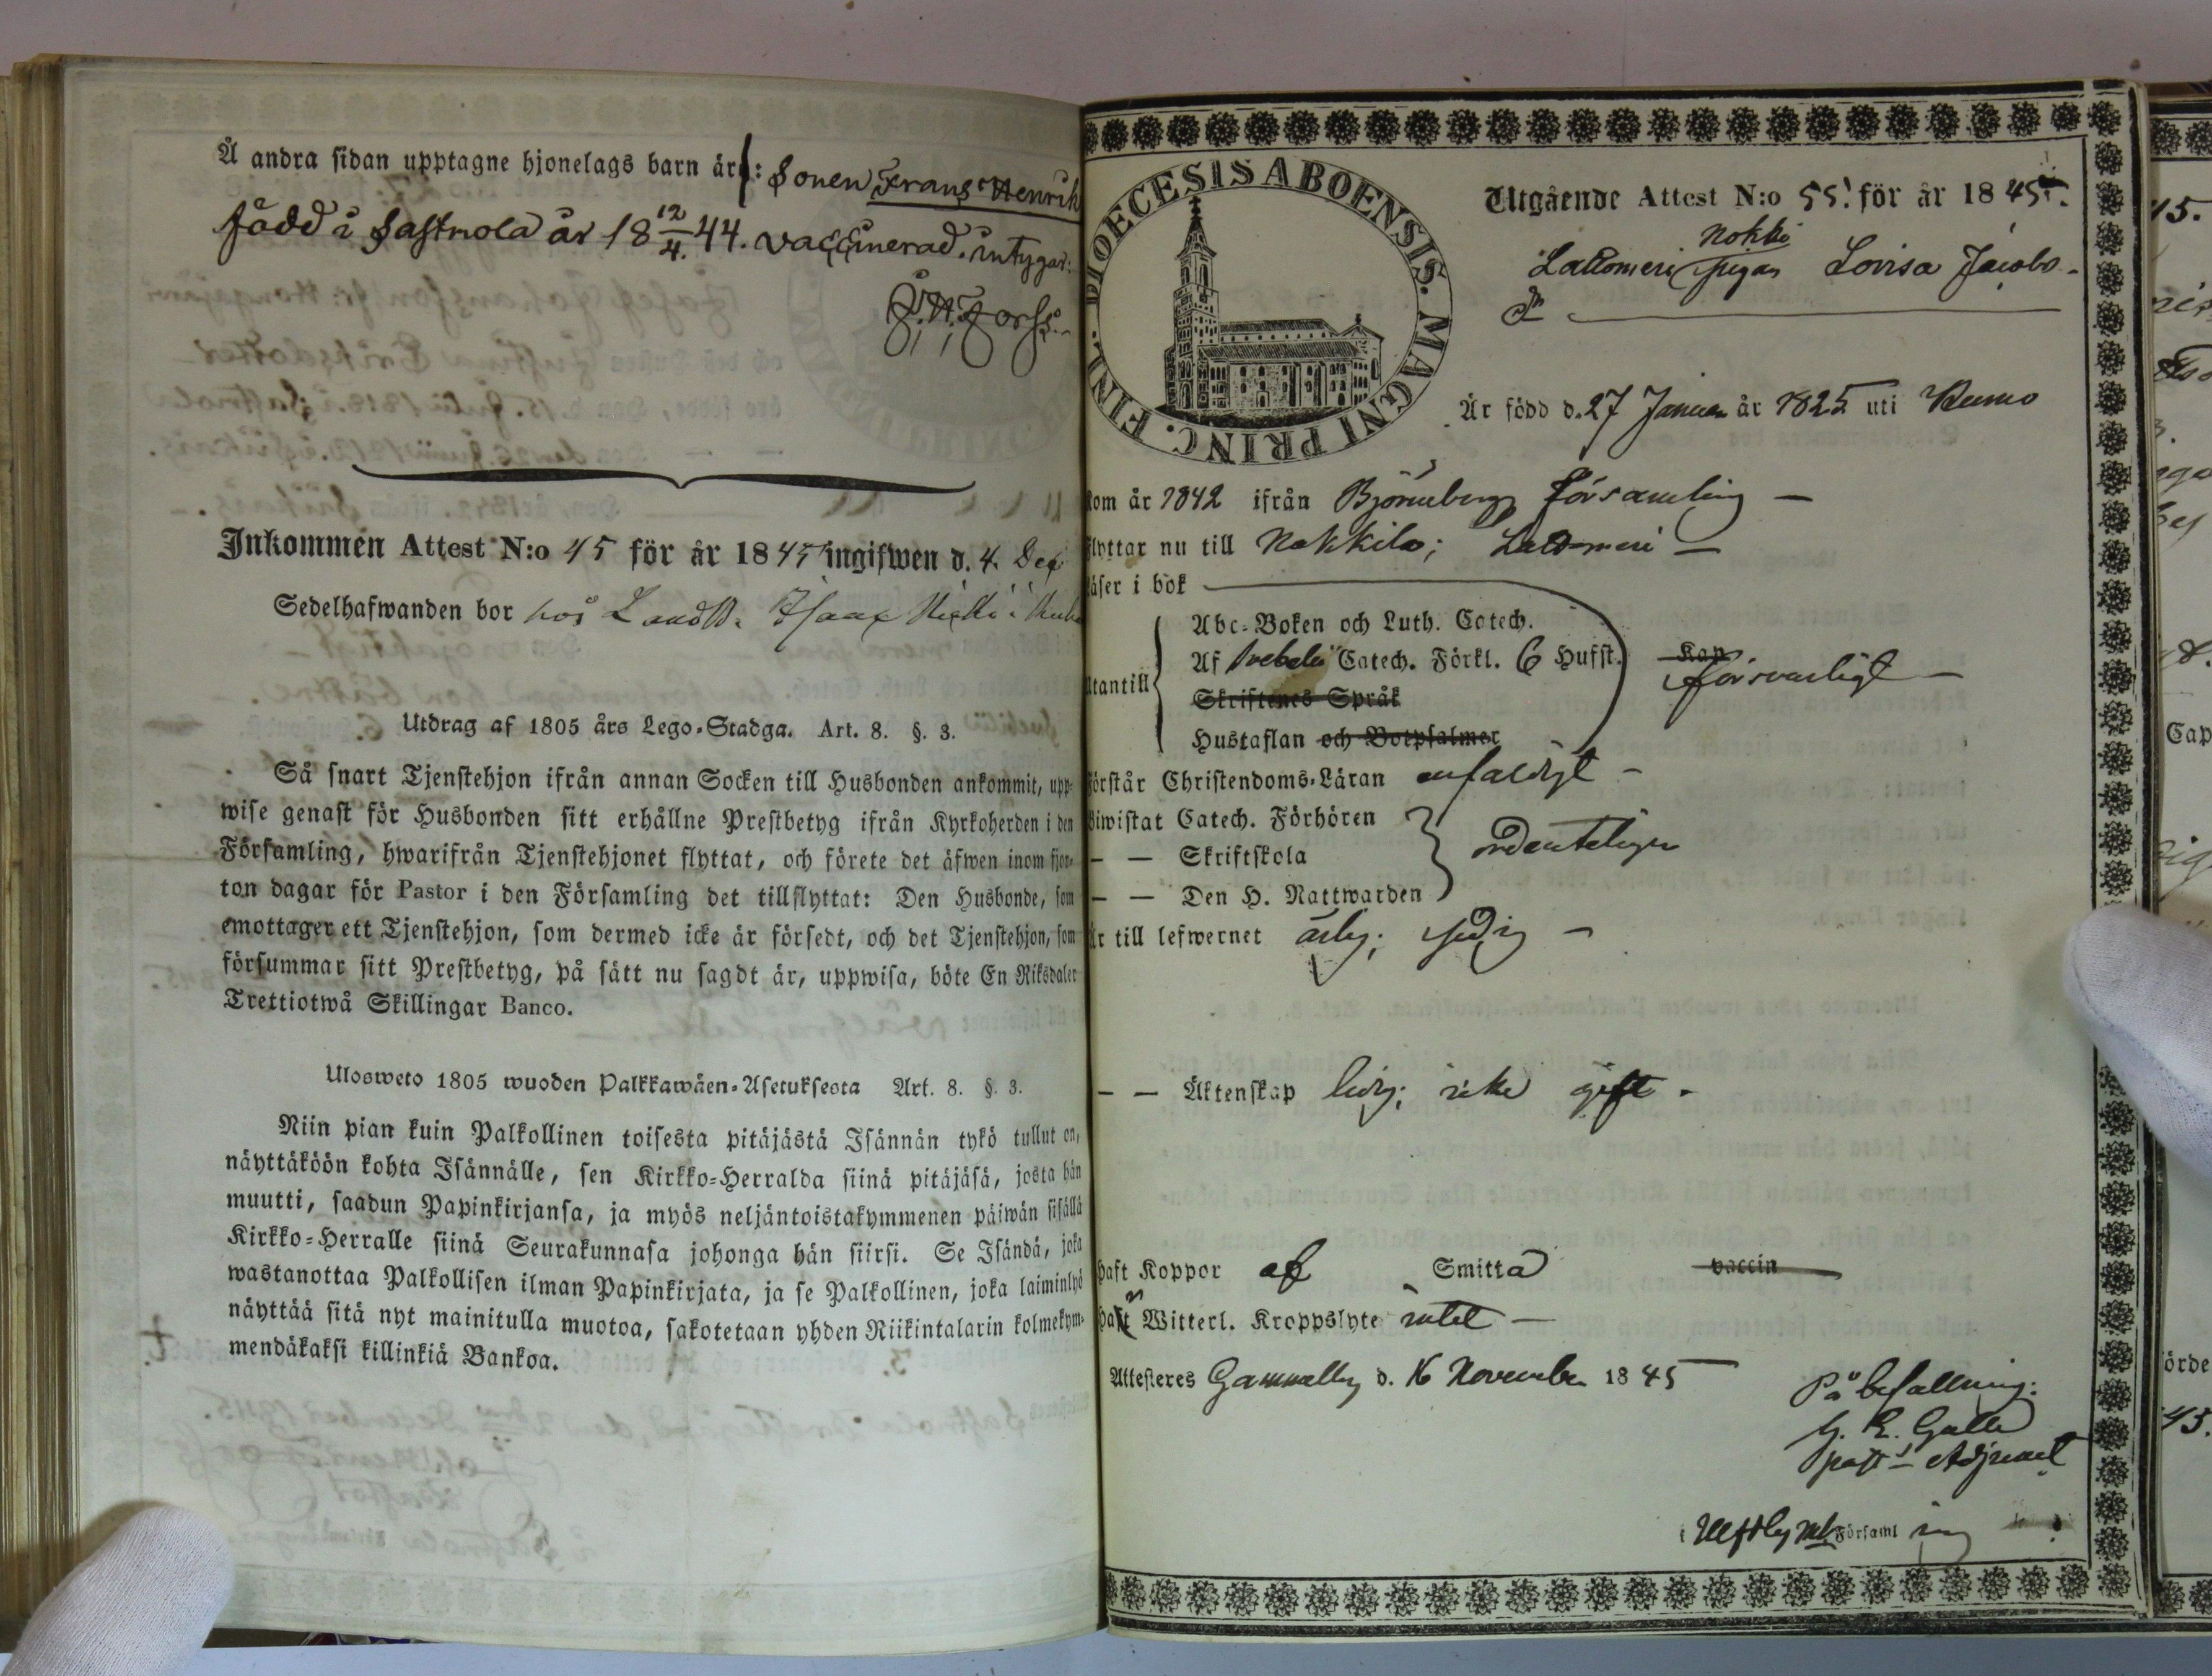 Å andra sidan upptagne hjonelags barn är: Sonen Frans Henrik
född i Sastmola år 18 12/4. 44. vaccinerad. intygar:
J. H. Forss.
Inkommen Attest N:o 45 för år 1845 ingifwen d. 4. Dec
Sedelhafwanden bor hos Landb. Isaac
Utdrag af 1805 års Lego-Stadga. Art. 8. §. 3.
Så snart Tjenstehjon ifrån annan Socken till Husbonden ankommit, upp-
wise genast för Husbonden sitt erhållne Prestbetyg ifrån Kyrkoherden i den
Församling, hwarifrån Tjenstehjonet flyttat, och förete det äfwen inom fjor-
ton dagar för Pastor i den Församling det tillflyttat: Den Husbonde, som
emottager ett Tjenstehjon, som dermed icke är försedt, och det Tjenstehjon, som
försummar sitt Prestbetyg, på sätt nu sagdt är, uppwisa, böte En Riksdaler
Trettiotwå Skillingar Banco.
Ulosweto 1805 wuoden Palkkawäen-Asetuksesta Art. 8. §. 3.
Niin pian kuin Palkollinen toisesta pitäjästä Isännän tykö tullut on,
näyttäköön kohta Isännälle, sen Kirkko-Herralda siinä pitäjäsä, josta hän
muutti, saadun Papinkirjansa, ja myös neljäntoistakymmenen päiwän sisällä
Kirkko-Herralle siinä Seurakunnasa johonga hän siirsi. Se Isändä, joka
wastanottaa Palkollisen ilman Papinkirjata, ja se Palkollinen, joka laiminlyö
näyttää sitä nyt mainitulla muotoa, sakotetaan yhden Riikintalarin kolmekym-
mendäkaksi killinkiä Bankoa.
DIOECESIS ABOENSIS. MAGNI PRINC. FINL.
Utgående Attest N:o 55. för år 1845.
Nokki
Lattomeri Pigan Lovisa Jacobs-
Dr
Är född d. 27 Januari år 1825 uti Kumo
kom år 1842 ifrån Björneborgs Församling —
flyttar nu till Nakkila; Lattomeri —
läser i bok
utantill
Abc-Boken och Luth. Catech.
Af Svebelii Catech. Förkl. 6 Hufst. Kap
försvarligt —
Skriftenes Språk
Hustaflan och Botpsalmer
förstår Christendoms-Läran enfaldigt —
Biwistat Catech. Förhören
— — Skriftskola ordenteligen
— — Den H. Nattwarden
Är till lefwernet ärlig; sedig —
— — Äktenskap ledig; icke gift —
haft Koppor af Smitta vaccin
haft Witterl. Kroppslyte intet —
Attesteres Gammelby d. 16 November 1845
På befallning:
G. E. Galle
past:s Adjunct
i Ulfsby Församling